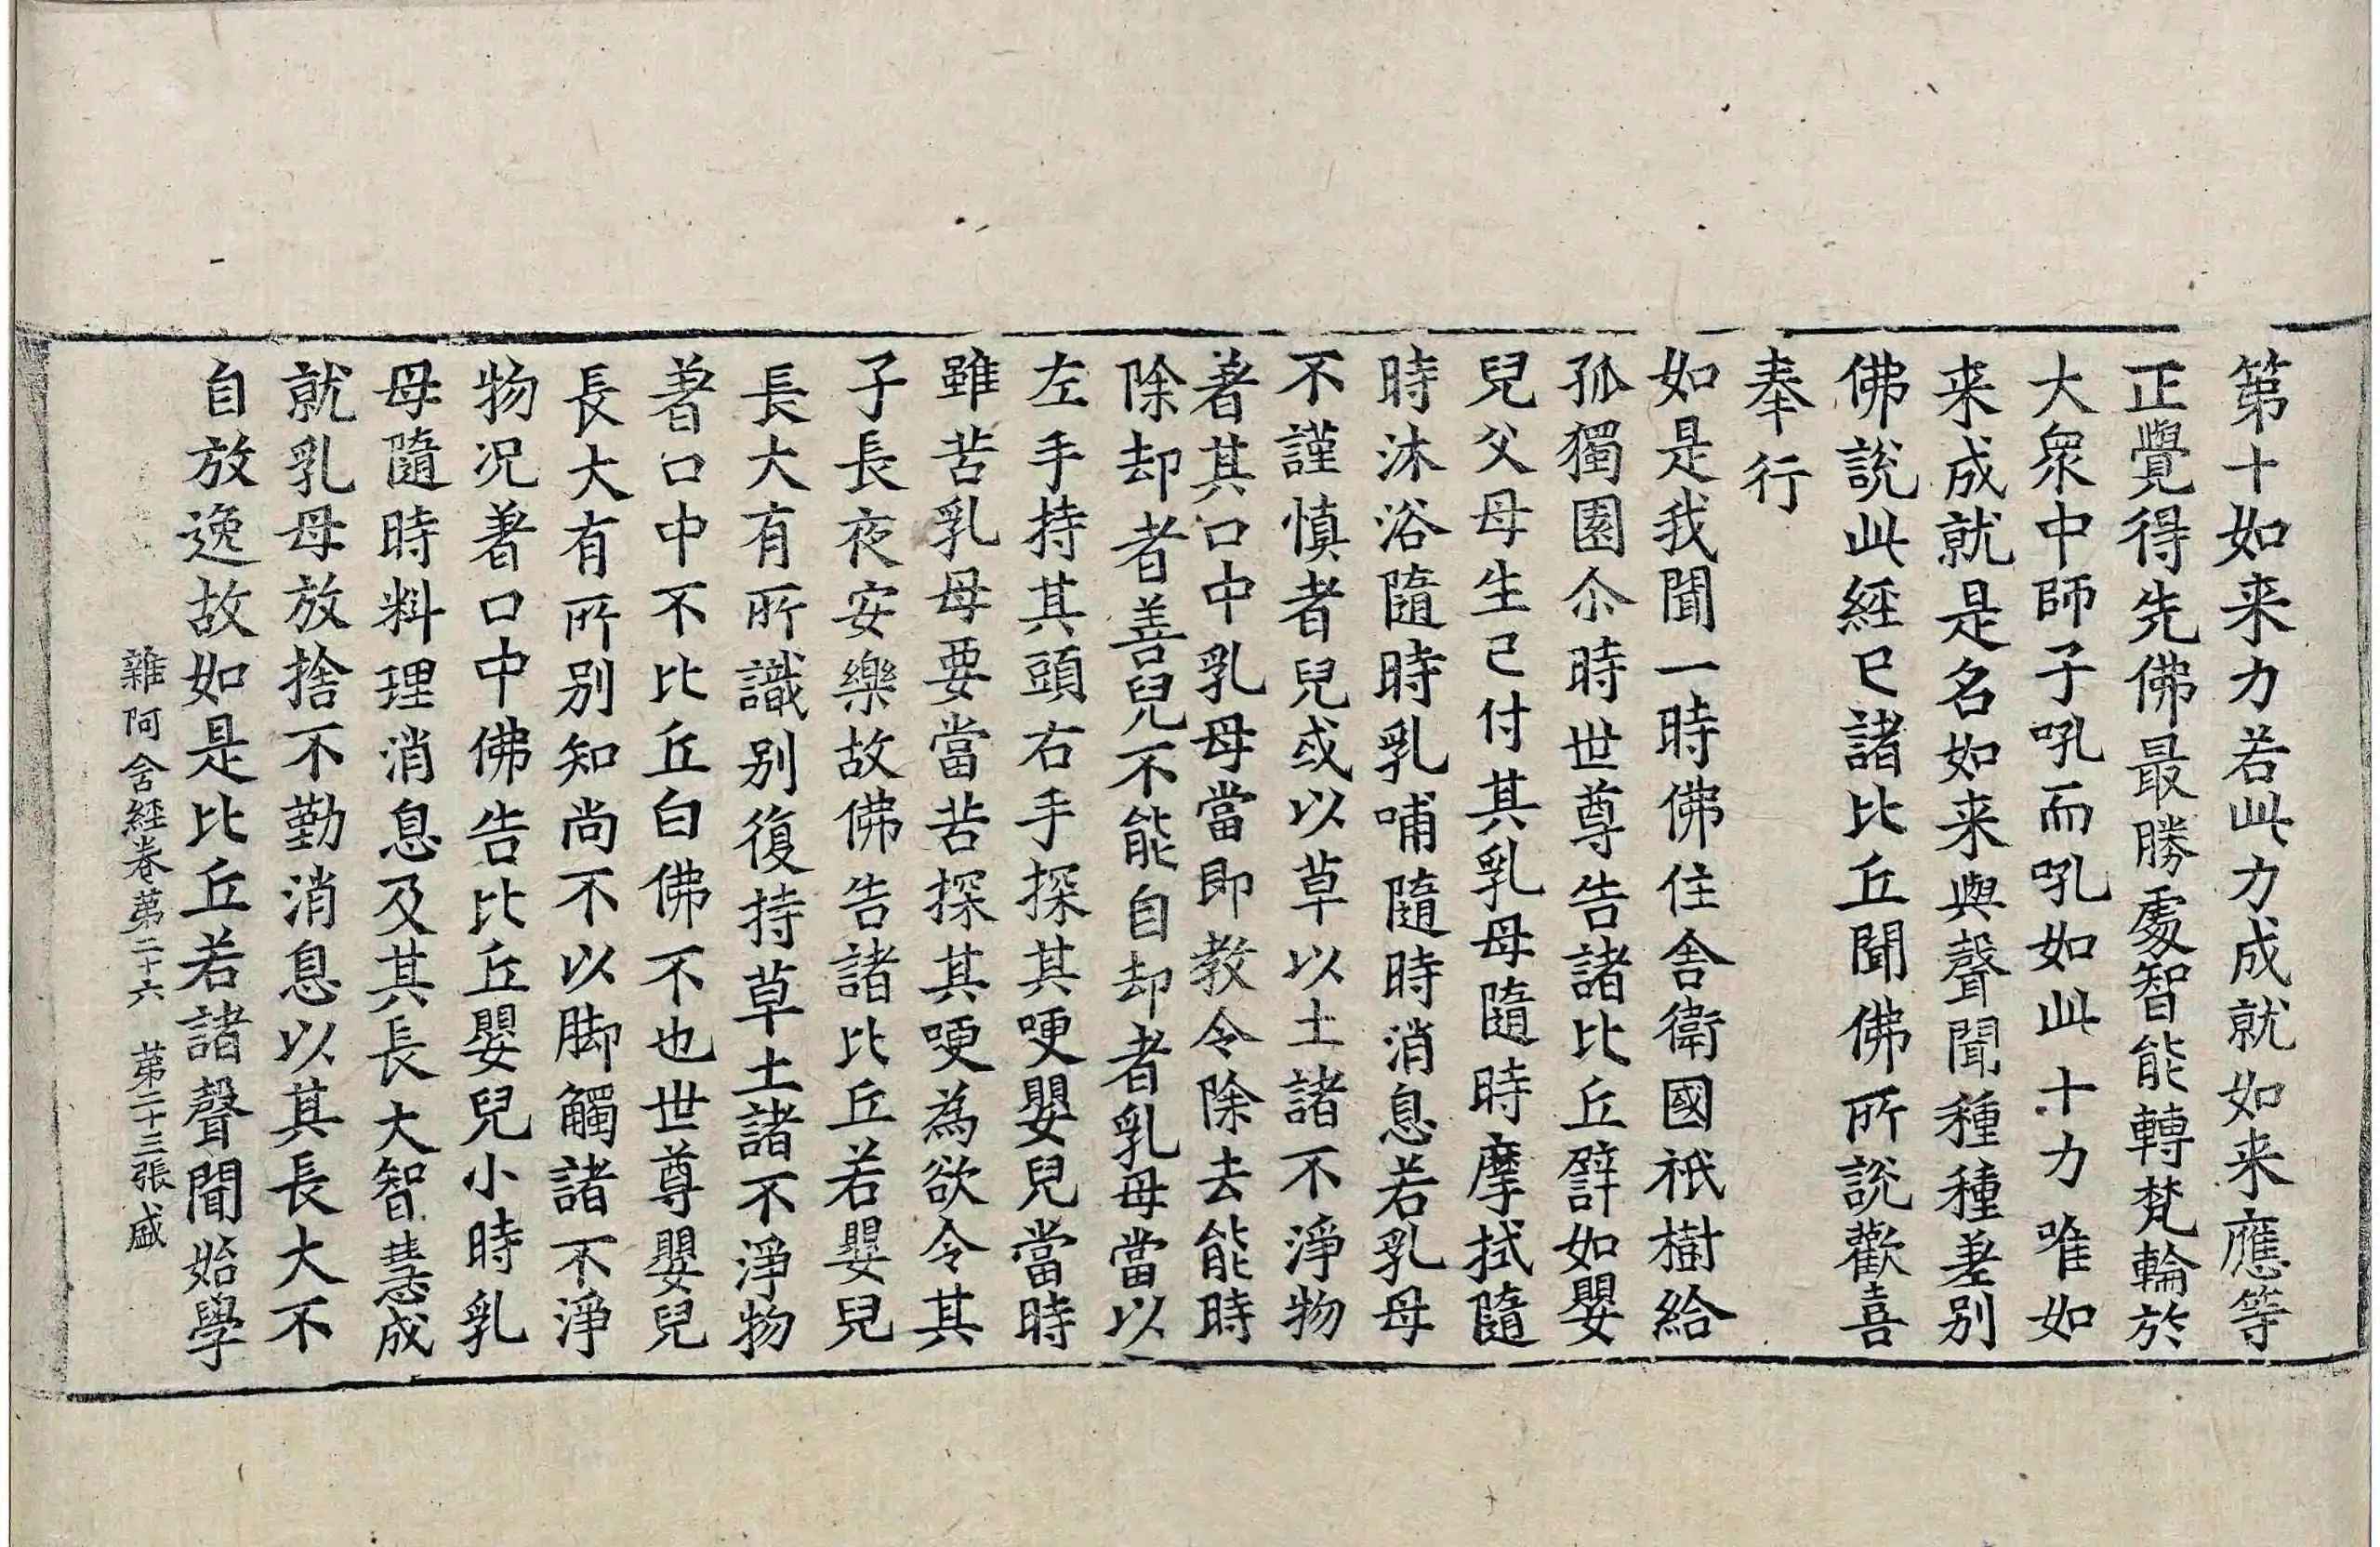 第十如来力若此力成就如来應等
正覺得先佛最勝處智能轉梵輪於
大衆中師子吼而吼如此十力唯如
来成就是名如来與聲聞種種差别
佛說此經已諸比丘聞佛所說歡喜
奉行
如是我聞一時佛住舍衛國祇樹給
孤獨園尒時世尊告諸比丘譬如嬰
兒父母生已付其乳母隨時摩拭隨
時沐浴隨時乳哺隨時消息若乳母
不謹慎者兒或以草以土諸不淨物
著其口中乳母當即教令除去能時
除却者善兒不能自却者乳母當以
左手持其頭右手探其哽嬰兒當時
雖苦乳母要當苦探其哽為欲令其
子長夜安樂故佛告諸比丘若嬰兒
長大有所識别復持草土諸不淨物
著口中不比丘白佛不也世尊嬰兒
長大有所别知尚不以脚觸諸不淨
物况著口中佛告比丘嬰兒小時乳
母隨時料理消息及其長大智慧成
就乳母放捨不勤消息以其長大不
自放逸故如是比丘若諸聲聞始學
雜阿含經卷第二十六　第二十三張 盛